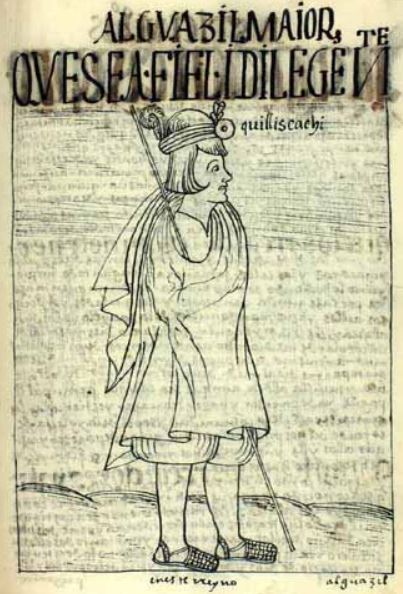 ALGVAZÍLMAIOR,
QVESEA·FÍEL·ÍDÍLEGĒVN TE
quilliscachi
en este rreyno
alguazil